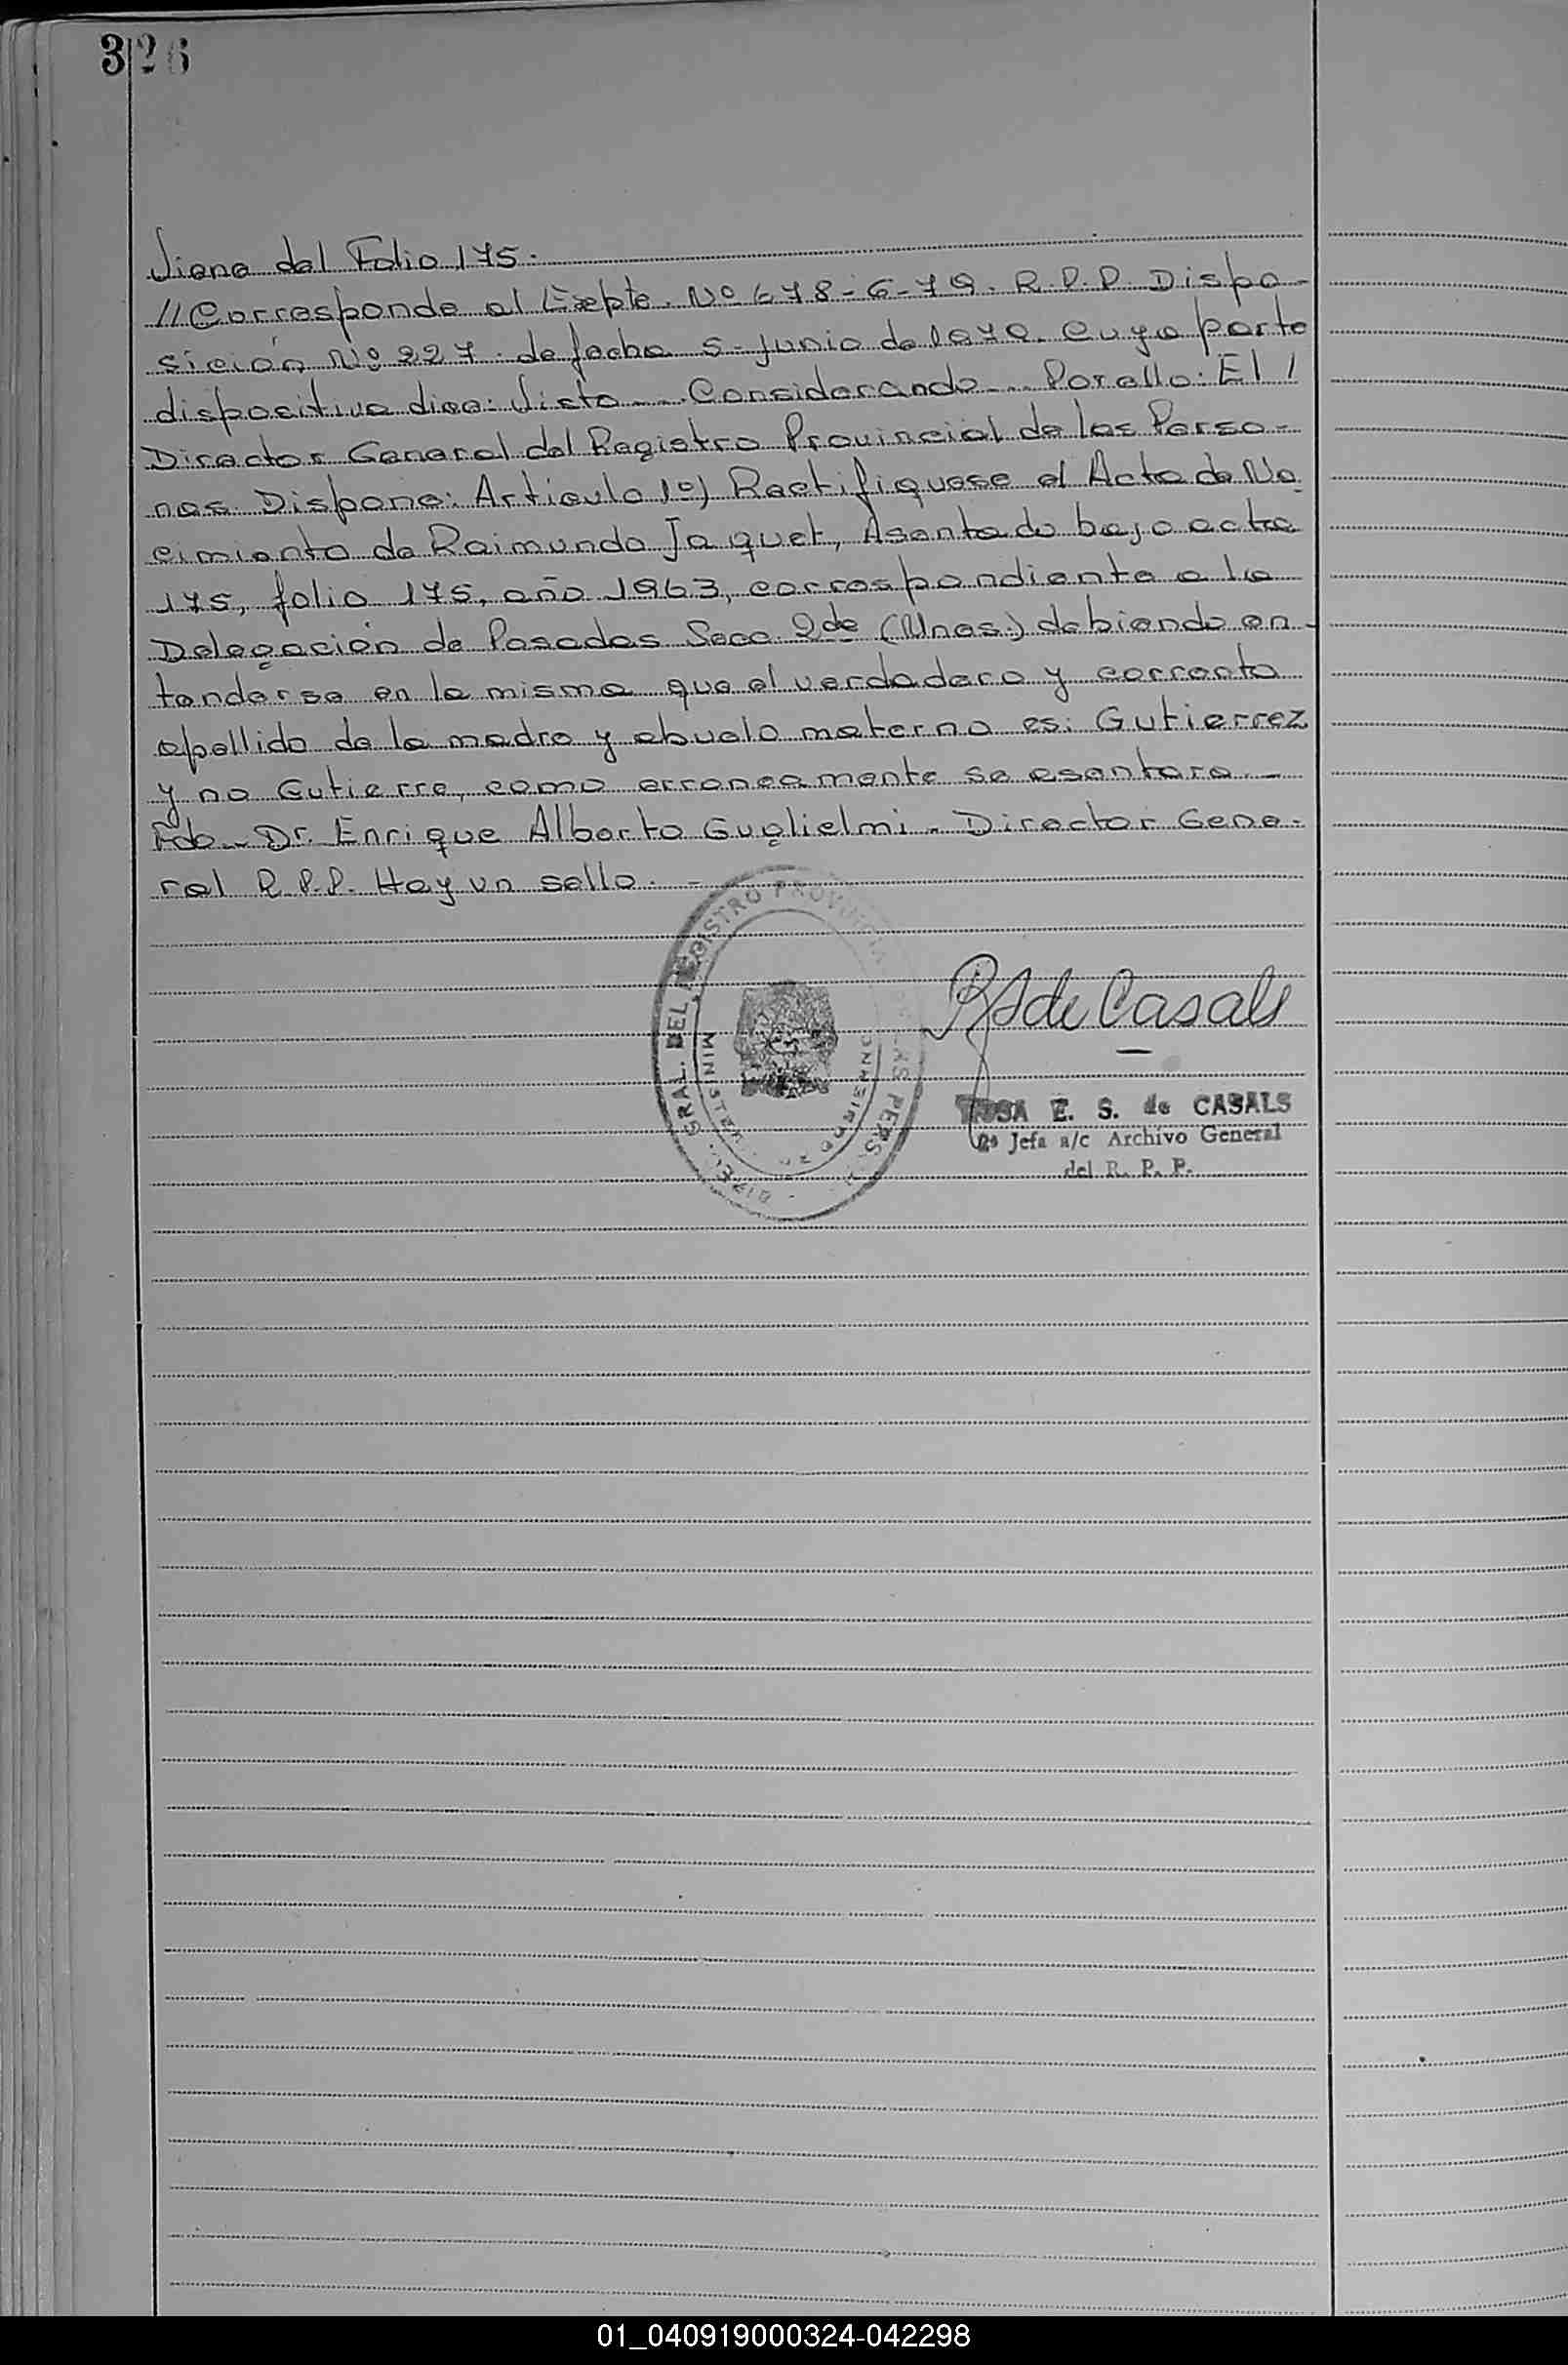 326
Viene del Folio 175.
//Corresponde al Expte. Nº 678-G-79. R.P.P. Dispo-
sición Nº 227. de fecha 5-junio de 1979. cuya parte
dispositiva dice: Visto -.. Considerando -.. Por ello: El /
Director General del Registro Provincial de las Perso-
nas. Dispone: Articulo 1º) Rectifiquese el Acta de Na-
cimiento de Raimundo Jaquet, Asentado bajo acta
175, folio 175, año 1963, correspondiente a la
Delegación de Posadas Secc. 2da (Mnes.) debiendo en-
tenderse en la misma que el verdadero y correcto
apellido de la madre y abuelo materno es: Gutierrez
y no Gutierre, como erroneamente se asentara -
Fdo.- Dr. Enrique Alberto Guglielmi - Director Gene-
ral R.P.P. Hay un sello. -
GRAL. DEL REGISTRO
de Casals
ROSA E. S. de CASALS
2ª Jefa a/c Archivo General
del R. P. P.
01_040919000324-042298